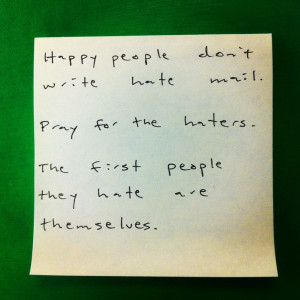 Happy people don't
write hate mail.
Pray for the haters.
The first people
they hate are
themselves.